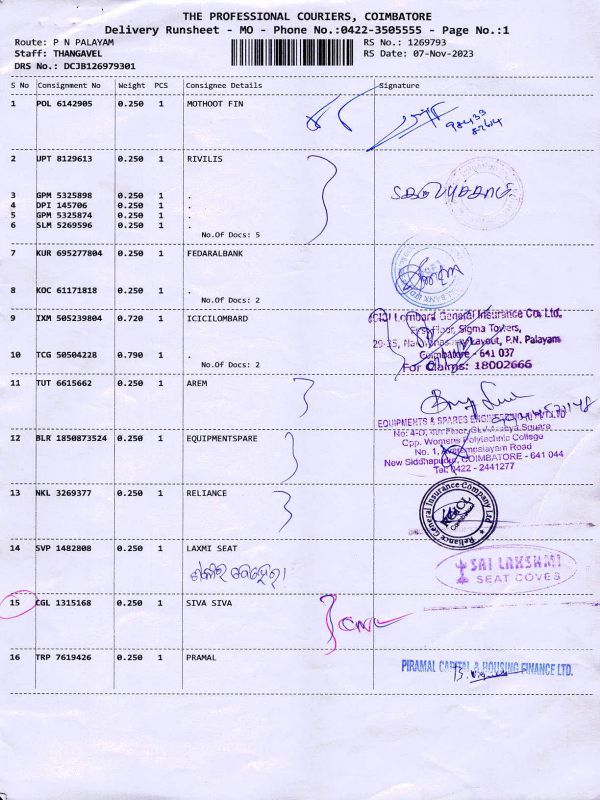 THE PROFESSIONAL COURIERS, COIMBATORE
Delivery Runsheet - MO - Phone No.:0422-3505555 - Page No.:1
Route: P N PALAYAM RS No.: 1269793
Staff: THANGAVEL RS Date: 07-Nov-2023
DRS No.: DCJB126979301
S No Consignment No Weight PCS Consignee Details Signature
1 POL 6142905 0.250 1 MOTHOOT FIN
2 UPT 8129613 0.250 1 RIVILIS
3 GPM 5325898 0.250 1 .
4 DPI 145706 0.250 1 .
5 GPM 5325874 0.250 1 .
6 SLM 5269596 0.250 1 .
No.Of Docs: 5
7 KUR 695277804 0.250 1 FEDARALBANK
8 KOC 61171818 0.250 1 .
No.Of Docs: 2
9 IXM 505239804 0.720 1 ICICILOMBARD
ICICI Lombard General Insurance Co. Ltd,
First Floor, Sigma Towers,
Layout, P.N. Palayam
Coimbatore - 641 037
For Claims: 18002666
10 TCG 50504228 0.790 1 .
No.Of Docs: 2
11 TUT 6615662 0.250 1 AREM
12 BLR 1850873524 0.250 1 EQUIPMENTSPARE
EQUIPMENTS & SPARES
Cpp. Womens Polytechnic College
No. 1, Avarampalayam Road
New Siddhapudur, COIMBATORE - 641 044
Tel: 0422 - 2441277
13 NKL 3269377 0.250 1 RELIANCE
Reliance General Insurance Company Ltd
14 SVP 1482808 0.250 1 LAXMI SEAT
SRI LAKSHMI
SEAT COVES
15 CGL 1315168 0.250 1 SIVA SIVA
16 TRP 7619426 0.250 1 PRAMAL
PIRAMAL CAPITAL & HOUSING FINANCE LTD.